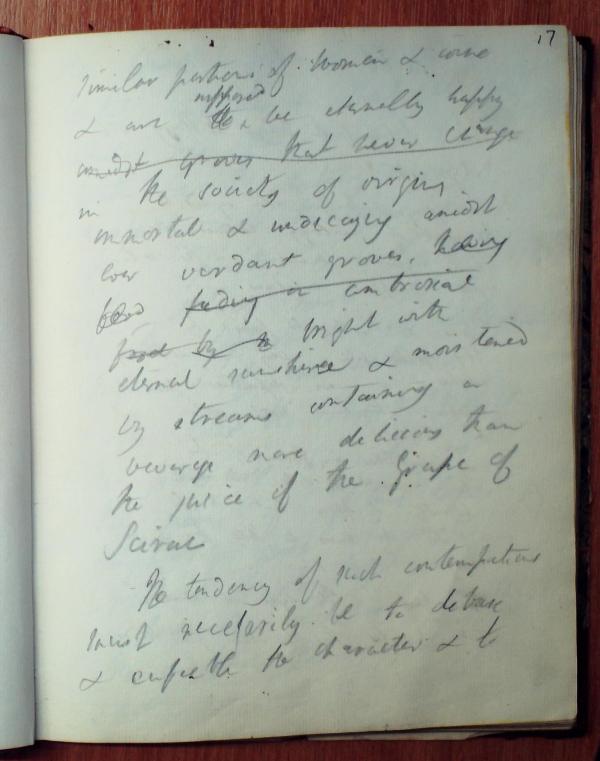 17
similar portions of women & wine
supposed
& are to be eternally happy
amidst groves that never change
in the society of virgins
immortal & undecaying amidst
ever verdant groves,
feeding on ambrosial
food by bright with
eternal sunshine & moistened
by streams containing a
beverage more delicious than
the juice of the Grape of
The tendency of such contemplations
must necessarily be to debase
& enfeeble the character & to